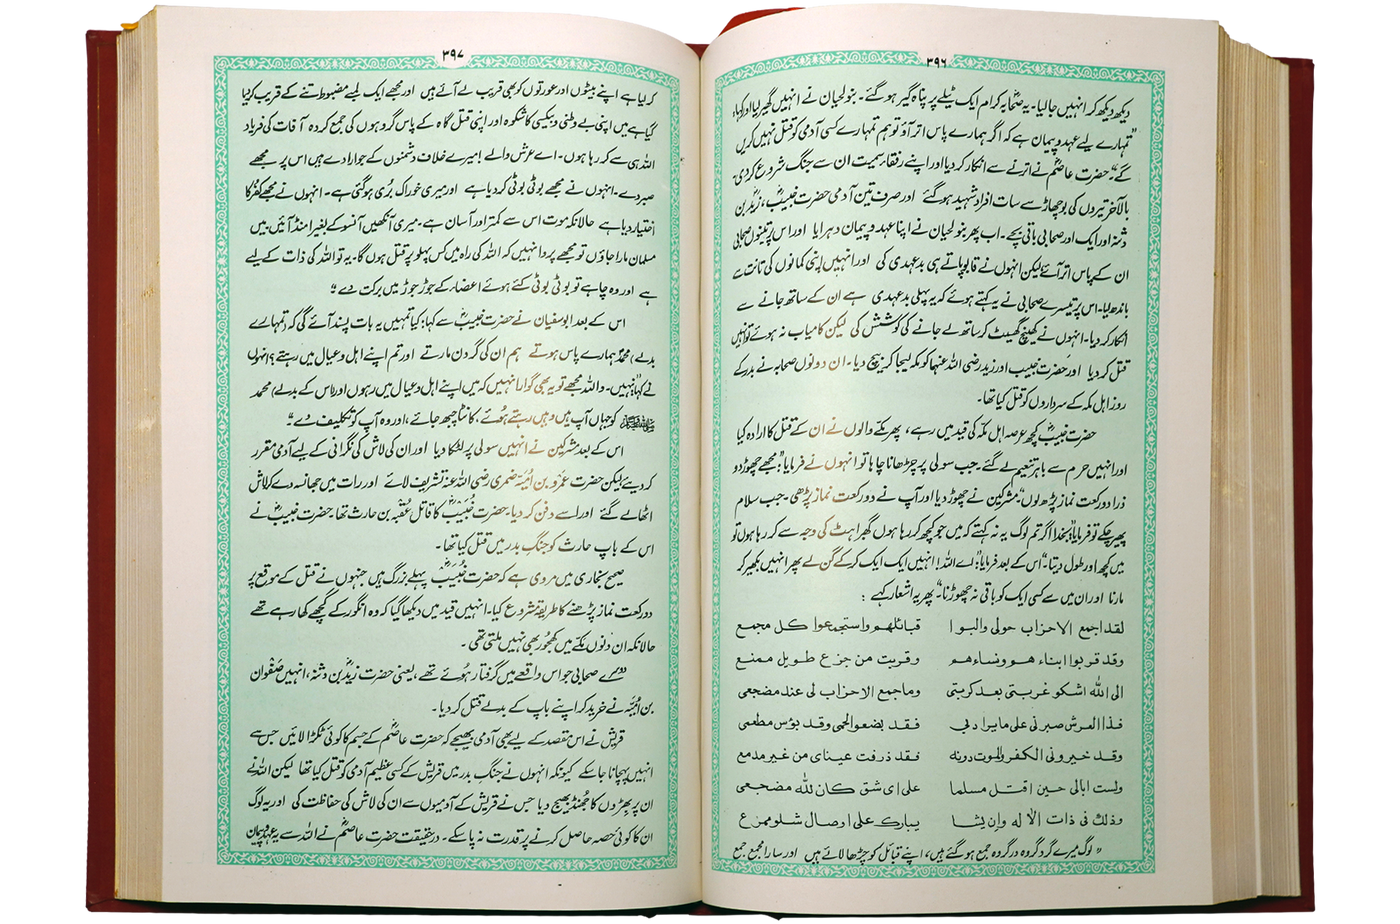 ۳۹۶
دیکھ دیکھ کر انہیں جالیا۔ یہ صحابہ کرام ایک ٹیلے پر پناہ گیر ہو گئے۔ بنو لحیان نے انہیں گھیر لیا اور کہا:
"تمہارے لیے عہد و پیمان ہے کہ اگر ہمارے پاس اتر آؤ تو ہم تمہارے کسی آدمی کو قتل نہیں کریں
گے"۔ حضرت عاصمؓ نے اترنے سے انکار کر دیا اور اپنے رفقاء سمیت ان سے جنگ شروع کر دی
بالآخر تیروں کی بوچھاڑ سے سات افراد شہید ہو گئے اور صرف تین آدمی حضرت خبیبؓ، زیدؓ بن
دثنہ اور ایک اور صحابی باقی بچے۔ اب پھر بنو لحیان نے اپنا عہد و پیمان دہرایا اور اس پر تینوں صحابی
ان کے پاس اتر آئے لیکن انہوں نے قابو پاتے ہی بدعہدی کی اور انہیں اپنی کمانوں کی تانت سے
باندھ لیا۔ اس پر تیسرے صحابی نے یہ کہتے ہوئے کہ یہ پہلی بدعہدی ہے ان کے ساتھ جانے سے
انکار کر دیا۔ انہوں نے کھینچ گھسیٹ کر ساتھ لے جانے کی کوشش کی لیکن کامیاب نہ ہوئے تو انہیں
قتل کر دیا اور حضرت خبیب اور زید رضی اللہ عنہما کو مکہ لیجا کر بیچ دیا۔ ان دونوں صحابہ نے بدر کے
روز اہل مکہ کے سرداروں کو قتل کیا تھا۔
حضرت خبیبؓ کچھ عرصہ اہل مکہ کی قید میں رہے، پھر مکے والوں نے ان کے قتل کا ارادہ کیا
اور انہیں حرم سے باہر تنعیم لے گئے۔ جب سولی پر چڑھانا چاہا تو انہوں نے فرمایا: "مجھے چھوڑ دو
ذرا دو رکعت نماز پڑھ لوں"۔ مشرکین نے چھوڑ دیا اور آپ نے دو رکعت نماز پڑھی۔ جب سلام
پھیر چکے تو فرمایا: "بخدا اگر تم لوگ یہ نہ کہتے کہ میں جو کچھ کر رہا ہوں گھبراہٹ کی وجہ سے کر رہا ہوں تو
میں کچھ اور طول دیتا"۔ اس کے بعد فرمایا: "اے اللہ! انہیں ایک ایک کر کے گن لے پھر انہیں بکھیر کر
مارنا اور ان میں سے کسی ایک کو باقی نہ چھوڑنا"۔ پھر یہ اشعار کہے:
لقد اجمع الاحزاب حولی والبوا قبائلهم واستجمعوا کل مجمع
وقد قربوا ابناءهم ونساءهم وقربت من جزع طویل ممنع
الی الله اشکو غربتی بعد کربتی وما جمع الاحزاب لی عند مضجعی
فذا العرش صبرنی علی ما یراد بی فقد بضعوا لحمی وقد بؤس مطعمی
وقد خیرونی الکفر والموت دونه فقد ذرفت عینای من غیر مدمع
ولست ابالی حین اقتل مسلما علی ای شق کان لله مضجعی
وذلک فی ذات الاله وان یشا یبارک علی اوصال شلو ممزع
"لوگ میرے گرد گروہ در گروہ جمع ہو گئے ہیں، اپنے قبائل کو چڑھا لائے ہیں اور سارا مجمع جمع
۳۹۷
کر لیا ہے اپنے بیٹوں اور عورتوں کو بھی قریب لے آئے ہیں اور مجھے ایک لمبے مضبوط تنے کے قریب کر دیا
گیا ہے میں اپنی بے وطنی و بیکسی کا شکوہ اور اپنی قتل گاہ کے پاس گروہوں کی جمع کردہ آفات کی فریاد
اللہ ہی سے کر رہا ہوں۔ اے عرش والے! میرے خلاف دشمنوں کے جو ارادے ہیں اس پر مجھے
صبر دے۔ انہوں نے مجھے بوٹی بوٹی کر دیا ہے اور میری خوراک بُری ہو گئی ہے۔ انہوں نے مجھے کفر کا
اختیار دیا ہے حالانکہ موت اس سے کمتر اور آسان ہے۔ میری آنکھیں آنسو کے بغیر امنڈ آئیں میں
مسلمان مارا جاؤں تو مجھے پروا نہیں کہ اللہ کی راہ میں کس پہلو پر قتل ہوں گا۔ یہ تو اللہ کی ذات کے لیے
ہے اور وہ چاہے تو بوٹی بوٹی کئے ہوئے اعضاء کے جوڑ جوڑ میں برکت دے"۔
اس کے بعد ابوسفیان نے حضرت خبیبؓ سے کہا: کیا تمہیں یہ بات پسند آئے گی کہ (تمہارے
بدلے) محمدؐ ہمارے پاس ہوتے ہم ان کی گردن مارتے اور تم اپنے اہل و عیال میں رہتے؟ انہوں
نے کہا "نہیں۔ واللہ مجھے تو یہ بھی گوارا نہیں کہ میں اپنے اہل و عیال میں رہوں اور (اس کے بدلے) محمد
ﷺ کو جہاں آپ ہیں وہیں رہتے ہوئے، کانٹا چبھ جائے، اور وہ آپ کو تکلیف دے"۔
اس کے بعد مشرکین نے انہیں سولی پر لٹکا دیا اور ان کی لاش کی نگرانی کے لیے آدمی مقرر
کر دیئے لیکن حضرت عمرو بن اُمیّہ ضمری رضی اللہ عنہ تشریف لائے اور رات میں جھانسہ دے کر لاش
اٹھا لے گئے اور اسے دفن کر دیا۔ حضرت خُبیبؓ کا قاتل عُقبہ بن حارث تھا۔ حضرت خبیبؓ نے
اس کے باپ حارث کو جنگِ بدر میں قتل کیا تھا۔
صحیح بخاری میں مروی ہے کہ حضرت خُبیبؓ پہلے بزرگ ہیں جنہوں نے قتل کے موقع پر
دو رکعت نماز پڑھنے کا طریقہ شروع کیا۔ انہیں قید میں دیکھا گیا کہ وہ انگور کے گچھے کھا رہے تھے
حالانکہ ان دنوں مکے میں کھجور بھی نہیں ملتی تھی۔
دوسرے صحابی جو اس واقعے میں گرفتار ہُوئے تھے، یعنی حضرت زیدؓ بن دثنہ، انہیں صفوان
بن اُمیّہ نے خرید کر اپنے باپ کے بدلے قتل کر دیا۔
قریش نے اس مقصد کے لیے بھی آدمی بھیجے کہ حضرت عاصمؓ کے جسم کا کوئی ٹکڑا لائیں جس سے
انہیں پہچانا جا سکے کیونکہ انہوں نے جنگِ بدر میں قریش کے کسی عظیم آدمی کو قتل کیا تھا لیکن اللہ نے
ان پر بِھڑوں کا جُھنڈ بھیج دیا جس نے قریش کے آدمیوں سے ان کی لاش کی حفاظت کی اور یہ لوگ
ان کا کوئی حصہ حاصل کرنے پر قدرت نہ پا سکے۔ درحقیقت حضرت عاصمؓ نے اللہ سے یہ عہد و پیمان